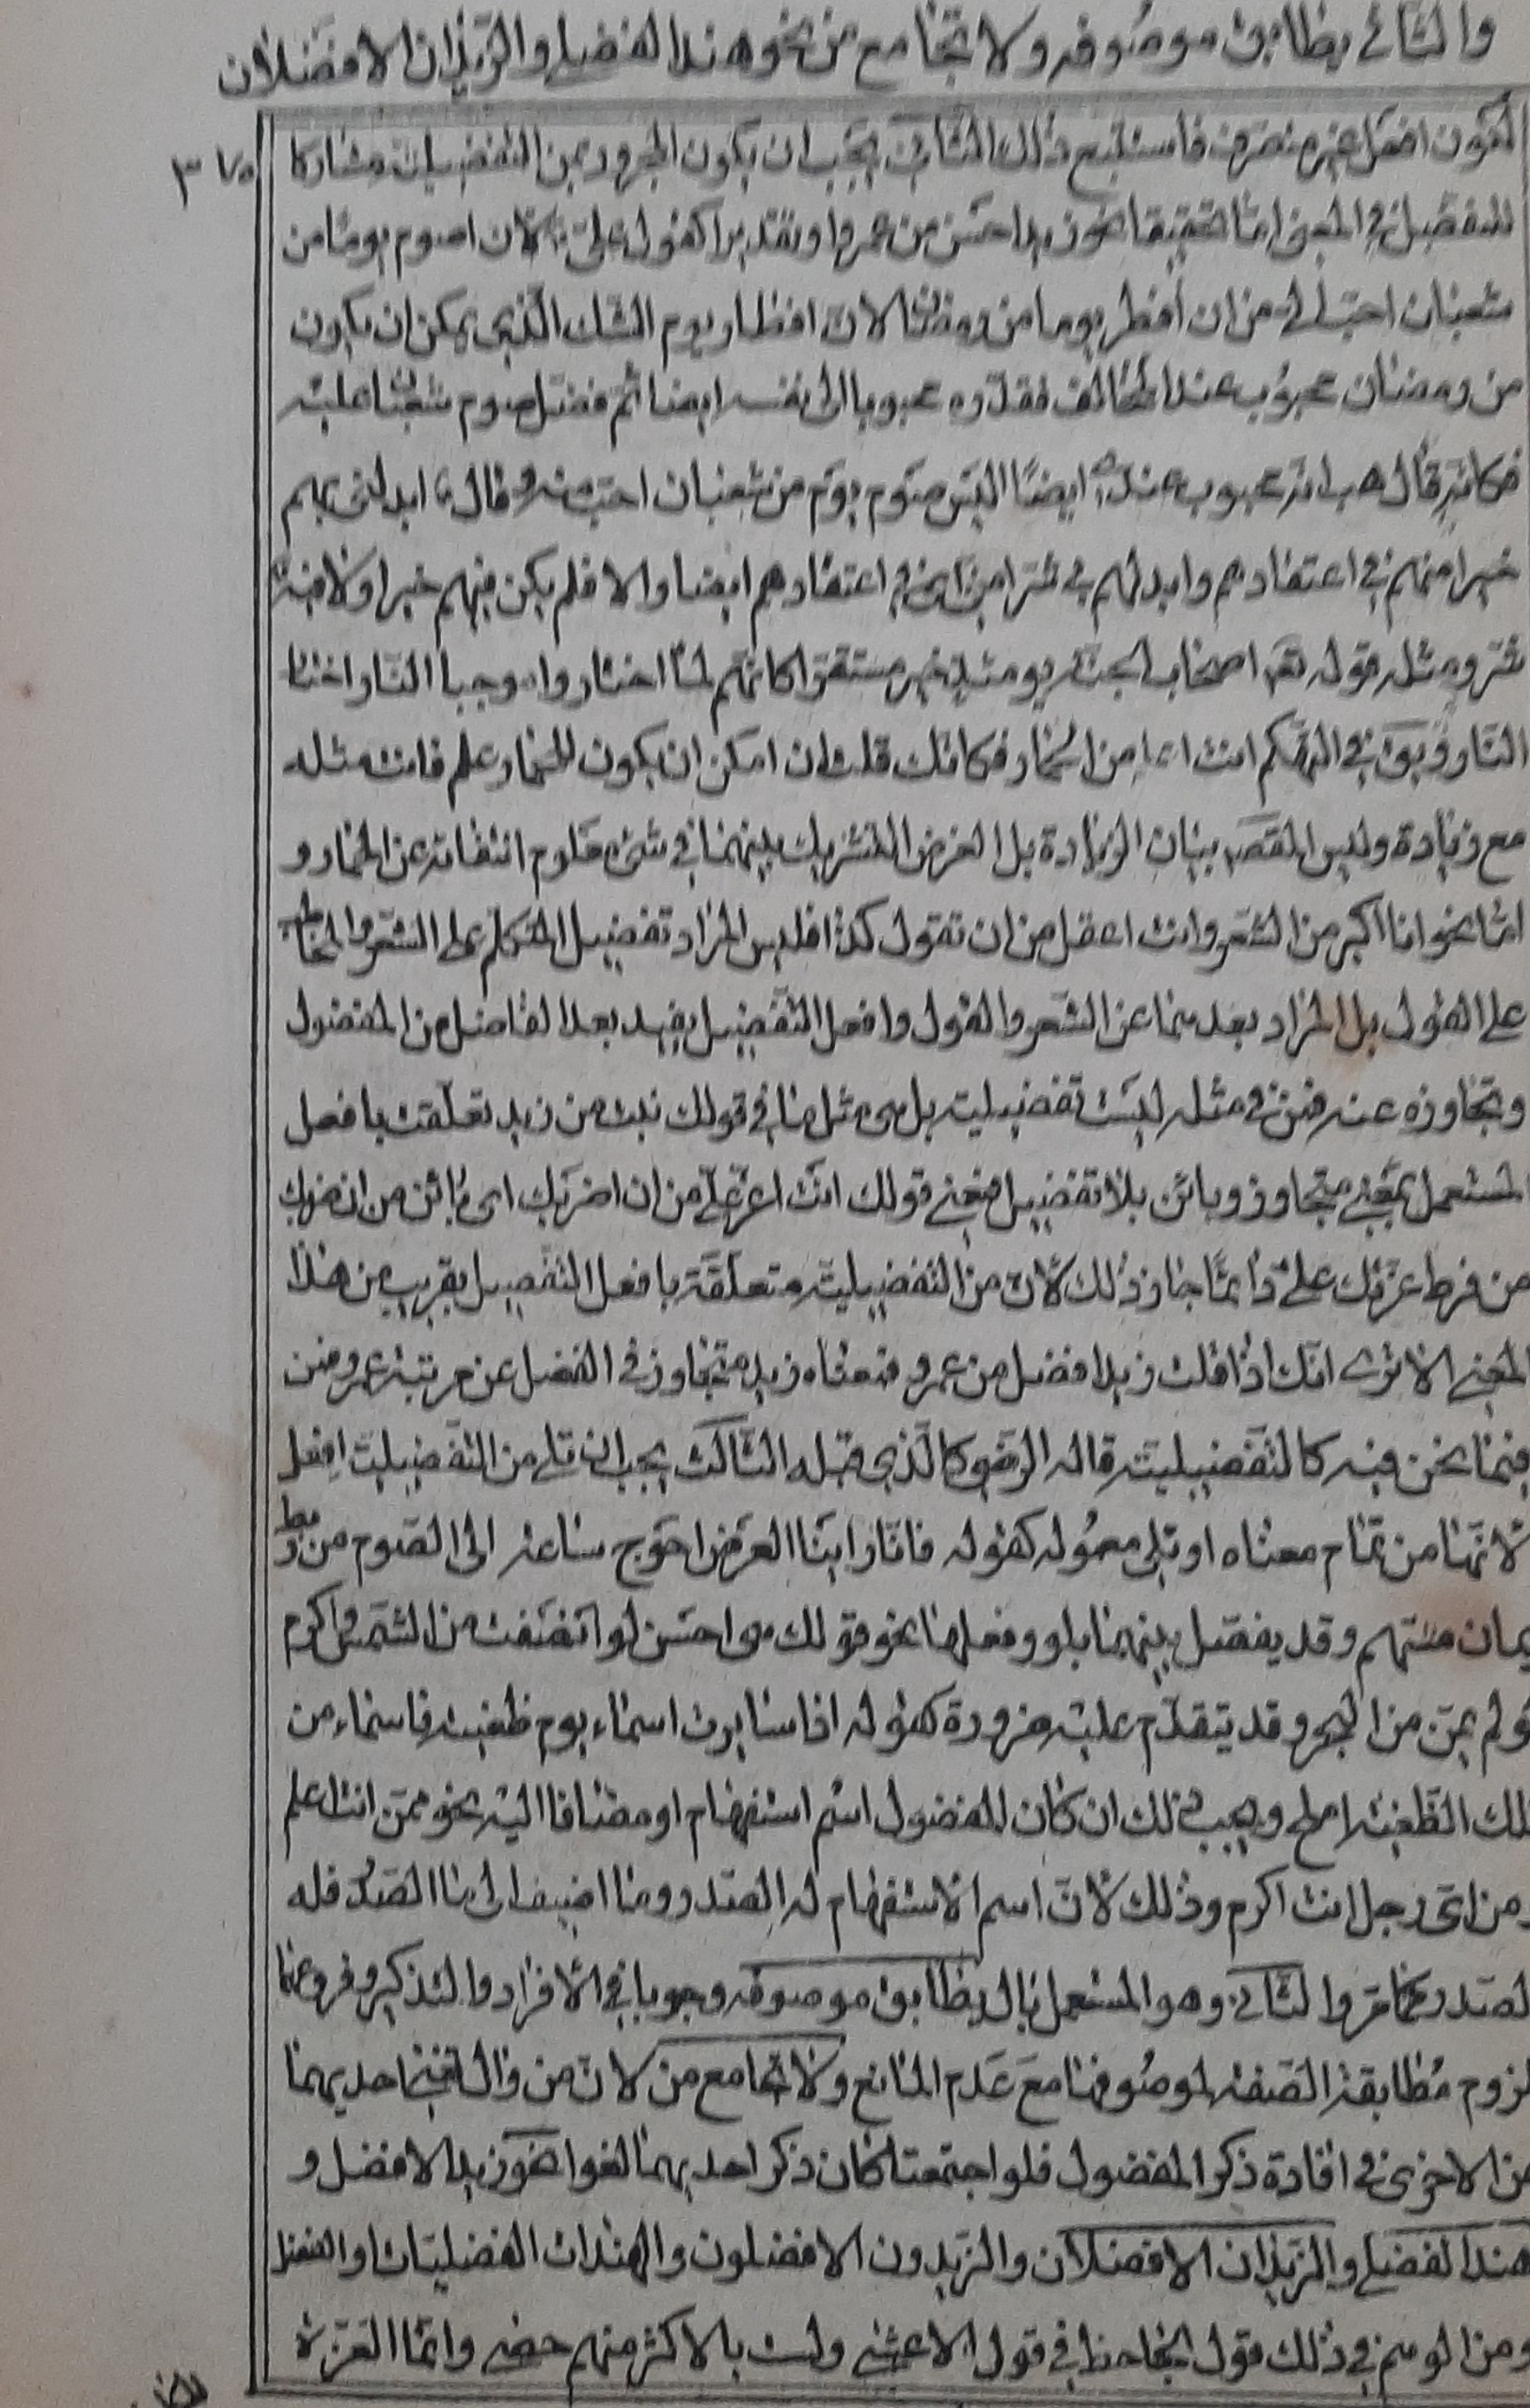 والثانى يطابق موصوفه ولا تجامع من نحو هند الفضلى والزيدان الافضلان
٣٧٥
لكون افعل غير منصرف فاستتبع ذلك الثانى يجب ان يكون المجرور بمن التفضيلية مشاركا
للمفضل فى المعنى اما تحقيقا نحو زيد احسن من عمرو او تقديرا كقول على لان اصوم يوما من
شعبان احب الى من ان أفطر يوما من رمضان لان افطار يوم الشك الذى يمكن ان يكون
من رمضان محبوب عند المخالف فقدره محبوبا الى نفسه ايضا ثم فضل صوم شعبان عليه
فكانه قال هب انه محبوب عندى ايضا اليس صوم يوم من شعبان احب منه وقال ابدلنى بهم
خيرا منهم فى اعتقادهم وابدلهم بى شرا منى اى فى اعتقادهم ايضا والا فلم يكن فيهم خير ولا فيه
شر ومثله قوله تعـ اصحاب الجنة يومئذ خير مستقرا كانهم لما اختاروا موجب النار اختاروا
النار ويق فى التهكم انت اعلم من الحمار فكانك قلت ان امكن ان يكون للحمار علم فانت مثله
مع زيادة وليس المقصـ بيان الزيادة بل الغرض التشريك بينهما فى شىء معلوم انتفائه عن الحمار و
اما نحو انا اكبر من الشعر وانت اعقل من ان تقول كذا فليس المراد تفضيل المتكلم على الشعر والمخاطب
على القول بل المراد بعدهما عن الشعر والقول وافعل التفضيل يفيد بعد الفاضل من المفضول
وتجاوزه عنه فمن فى مثله ليست تفضيلية بل هى مثل ما فى قولك بنت من زيد تعلقت بافعل
المستعمل بمعنى متجاوز وبائن بلا تفضيل فمعنى قولك انت اعز على من ان اضربك اى بائن من ان اضربك
من فرط عزتك على وانما جاز ذلك لان من التفضيلية متعلقة بافعل التفضيل بقريب من هذا
المعنى الا ترى انك اذا قلت زيد افضل من عمرو فمعناه زيد متجاوز فى الفضل عن مرتبة عمرو فمن
فيما نحن فيه كالتفضيلية قاله الرضى كالذى قبله الثالث يجب ان تلى من التفضيلية افعل
لانها من تمام معناه او تلى معموله كقوله فانا رأينا العرض احوج ساعة الى الصوم من ريط
يمان مسهم وقد يفصل بينهما بلو وفعلها نحو قولك هى احسن لو انصفت من الشمس واكرم
لو لم يمن من البحر وقد يتقدم عليه ضرورة كقوله اذا سايرت اسماء يوم ظعينة فاسماء من
تلك الظعينة املح ويجب ذلك ان كان المفضول اسم استفهام او مضافا اليه نحو ممن انت اعلم
ومن اى رجل انت اكرم وذلك لان اسم الاستفهام له الصدر وما اضيف الى ما له الصدر فله
الصدر كما مر والثانى وهو المستعمل بال يطابق موصوفه وجوبا فى الافراد والتذكير وفروعهما
لزوم مطابقة الصفة لموصوفها مع عدم المانع ولا تجامع من لان من وال تغنى احديهما
من الاخرى فى افادة ذكر المفضول فلو اجتمعتا كان ذكر احديهما لغوا نحو زيد الافضل و
هند الفضلى والزيدان الافضلان والزيدون الافضلون والهندات الفضليات او الفضل
ومن الوهم فى ذلك قول الجاحظ فى قول الاعشى ولست بالاكثر منهم حصى وانما العزة